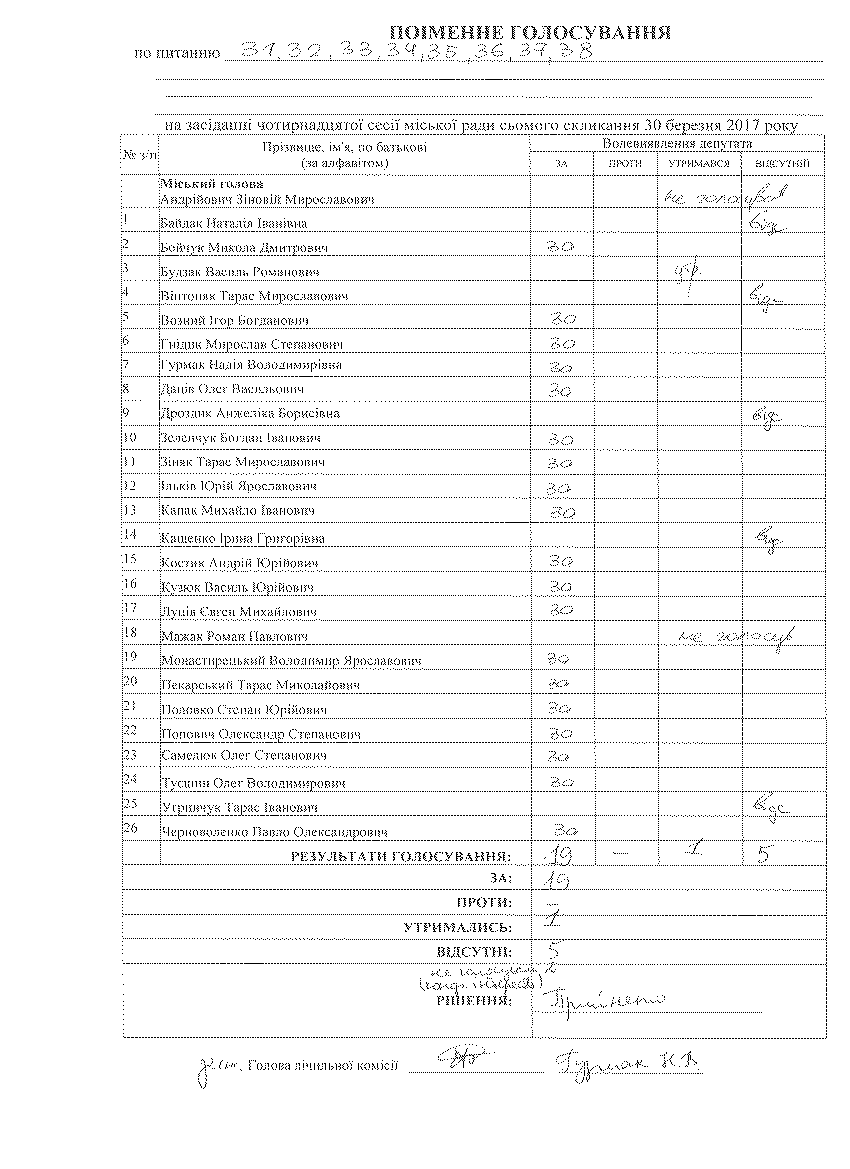 ПОІМЕННЕ ГОЛОСУВАННЯ
по питанню 31, 32, 33, 34, 35, 36, 37, 38
на засіданні чотирнадцятої сесії міської ради сьомого скликання 30 березня 2017 року
№ з/п Прізвище, ім'я, по батькові (за алфавітом) Волевиявлення депутата
ЗА ПРОТИ УТРИМАВСЯ ВІДСУТНІЙ
Міський голова
Андрійович Зіновій Мирославович не голосував
1 Байдак Наталія Іванівна відс
2 Бойчук Микола Дмитрович за
3 Будзак Василь Романович утр.
4 Вінтоняк Тарас Мирославович відс
5 Возний Ігор Богданович за
6 Гнідик Мирослав Степанович за
7 Гурмак Надія Володимирівна за
8 Даців Олег Васильович за
9 Дроздик Анжеліка Борисівна відс
10 Зеленчук Богдан Іванович за
11 Зіняк Тарас Мирославович за
12 Ільків Юрій Ярославович за
13 Капак Михайло Іванович за
14 Кащенко Ірина Григорівна відс
15 Костик Андрій Юрійович за
16 Кузюк Василь Юрійович за
17 Луців Євген Михайлович за
18 Мажак Роман Павлович не голосув
19 Монастирецький Володимир Ярославович за
20 Пекарський Тарас Миколайович за
21 Половко Степан Юрійович за
22 Попович Олександр Степанович за
23 Самелюк Олег Степанович за
24 Тусиин Олег Володимирович за
25 Угринчук Тарас Іванович відс
26 Черноволенко Павло Олександрович за
РЕЗУЛЬТАТИ ГОЛОСУВАННЯ: 19 — 1 5
ЗА: 19
ПРОТИ: —
УТРИМАЛИСЬ: 1
ВІДСУТНІ: 5
не голосували 2
РІШЕННЯ: Прийнято
Голова лічильної комісії Гурмак Н.В